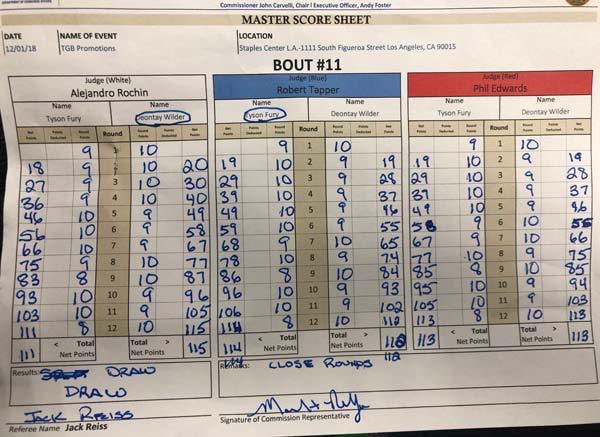 Commissioner John Carvelli, Chair I Executive Officer, Andy Foster
MASTER SCORE SHEET
DATE NAME OF EVENT LOCATION
12/01/18 TGB Promotions Staples Center L.A.-1111 South Figueroa Street Los Angeles, CA 90015
BOUT #11
Judge (White) Judge (Blue) Judge (Red)
Alejandro Rochin Robert Tapper Phil Edwards
Name Name Name Name Name Name
Tyson Fury Deontay Wilder Tyson Fury Deontay Wilder Tyson Fury Deontay Wilder
Net Points Points Deducted Round Points Round Round Points Points Deducted Net Points Net Points Points Deducted Round Points Round Round Points Points Deducted Net Points Net Points Points Deducted Round Points Round Round Points Points Deducted Net Points
9 1 10 9 1 10 9 1 10
18 9 2 10 20 19 10 2 9 19 19 10 2 9 19
27 9 3 10 30 29 10 3 9 28 29 10 3 9 28
36 9 4 10 40 39 10 4 9 37 39 10 4 9 37
46 10 5 9 49 49 10 5 9 46 49 10 5 9 46
56 10 6 9 58 59 10 6 9 55 58 9 6 10
66 10 7 9 67 68 9 7 10 65 67 9 7 10 66
75 9 8 10 77 78 10 8 9 74 77 10 8 9 75
83 8 9 10 87 86 8 9 10 84 85 8 9 10 85
93 10 10 9 96 96 10 10 9 93 95 10 10 9 94
103 10 11 9 105 106 10 11 9 102 105 10 11 9 103
111 8 12 10 115 114 8 12 10 112 113 8 12 10 113
111 < Total > Net Points Net Points 115 114 < Total > Net Points Net Points 112 113 < Total > Net Points Net Points 113
114 112
Results: DRAW Remarks: CLOSE ROUNDS
DRAW
Jack Reiss
Referee Name Jack Reiss Signature of Commission Representative